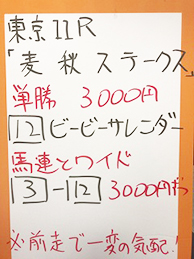 東京11R
「麦秋ステークス」
単勝 3000円
12 ビービーサレンダー
馬連とワイド
3-12 3000円ずつ
※前走で一変の気配!